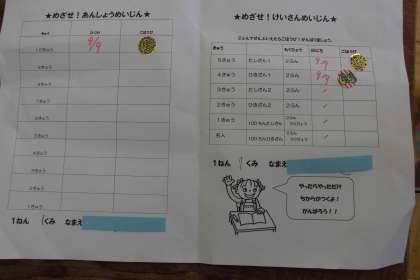 ★めざせ！あんしょうめいじん★
きゅう ごうかく ごほうび
10きゅう 9/9
9きゅう
8きゅう
7きゅう
6きゅう
5きゅう
4きゅう
3きゅう
2きゅう
1きゅう
1ねん 1くみ なまえ
★めざせ！けいさんめいじん★
2ふんでぜんぶいえたらごほうび！がんばりましょう。
きゅう もくひょう はじめ ごほうび
5きゅう たしざん1 2ふん 9/9
4きゅう ひきざん1 2ふん 9/9
3きゅう たしざん2 2ふん /
2きゅう ひきざん2 2ふん /
1きゅう 100もんたしざん 2ふん /
名人 100もんひきざん 2ふん /
1ねん 1くみ なまえ
やったらやっただけ
ちからがつくよ！
がんばろう！！